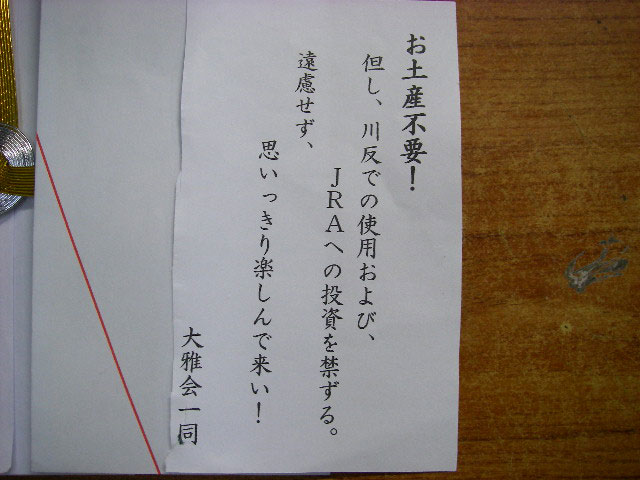 お土産不要！
但し、川反での使用および、
ＪＲＡへの投資を禁ずる。
遠慮せず、
思いっきり楽しんで来い！
大雅会一同